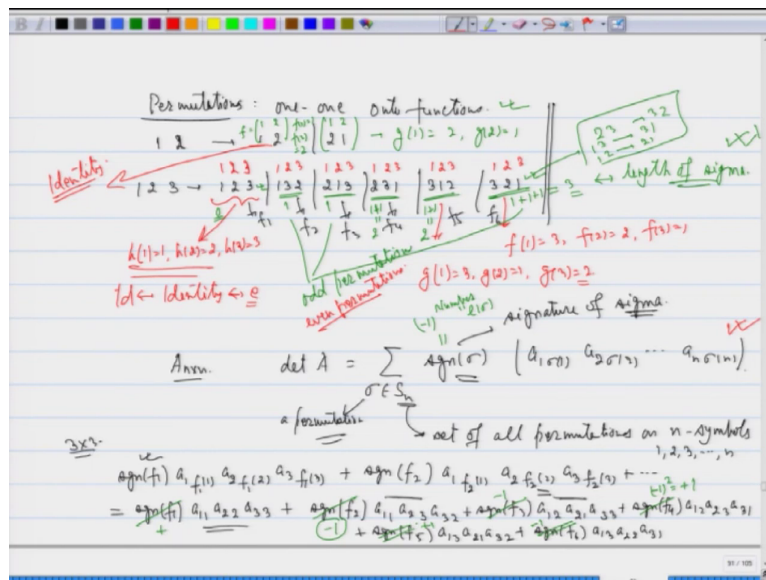 Permutations : one-one onto functions.
1 2 → f = (1 2 f(1)=1 f(2)=2 | (1 2
2 | 2 1) → g(1) = 2, g(2)=1
23 → 32
13 → 31
12 → 21
Identity.
1 2 3 | 1 2 3 | 1 2 3 | 1 2 3 | 1 2 3 | 1 2 3
1 2 3 → 1 2 3 | 132 | 213 | 231 | 312 | 321
1+1+1 = 3 ↔ length of sigma.
e f1 1 f2 1 f3 1+1 = 2 f4 1+1 = 2 f5 f6
h(1)=1, h(2)=2, h(3)=3
f(1) = 3, f(2) = 2, f(3)=1
Id ↔ Identity ↔ e
odd permutation
even permutations.
g(1)=3, g(2)=1, g(3)=2
(-1) Number l(σ)
signature of sigma.
Anxn. det A = ∑ sgn(σ) (a1σ(1) a2σ(2) ... anσ(n))
σ ∈ Sn
a permutation
set of all permutations on n-symbols
1, 2, 3, ..., n
3x3.
sgn(f1) a1 f1(1) a2 f1(2) a3 f1(3) + sgn(f2) a1 f2(1) a2 f2(2) a3 f2(3) + ...
(-1)² = +1
= sgn(f1) a11 a22 a33 + sgn(f2) a11 a23 a32 + sgn(f3) a12 a21 a33 + sgn(f4) a12 a23 a31
+ -1 + sgn(f5) a13 a21 a32 + sgn(f6) a13 a22 a31
31 / 105